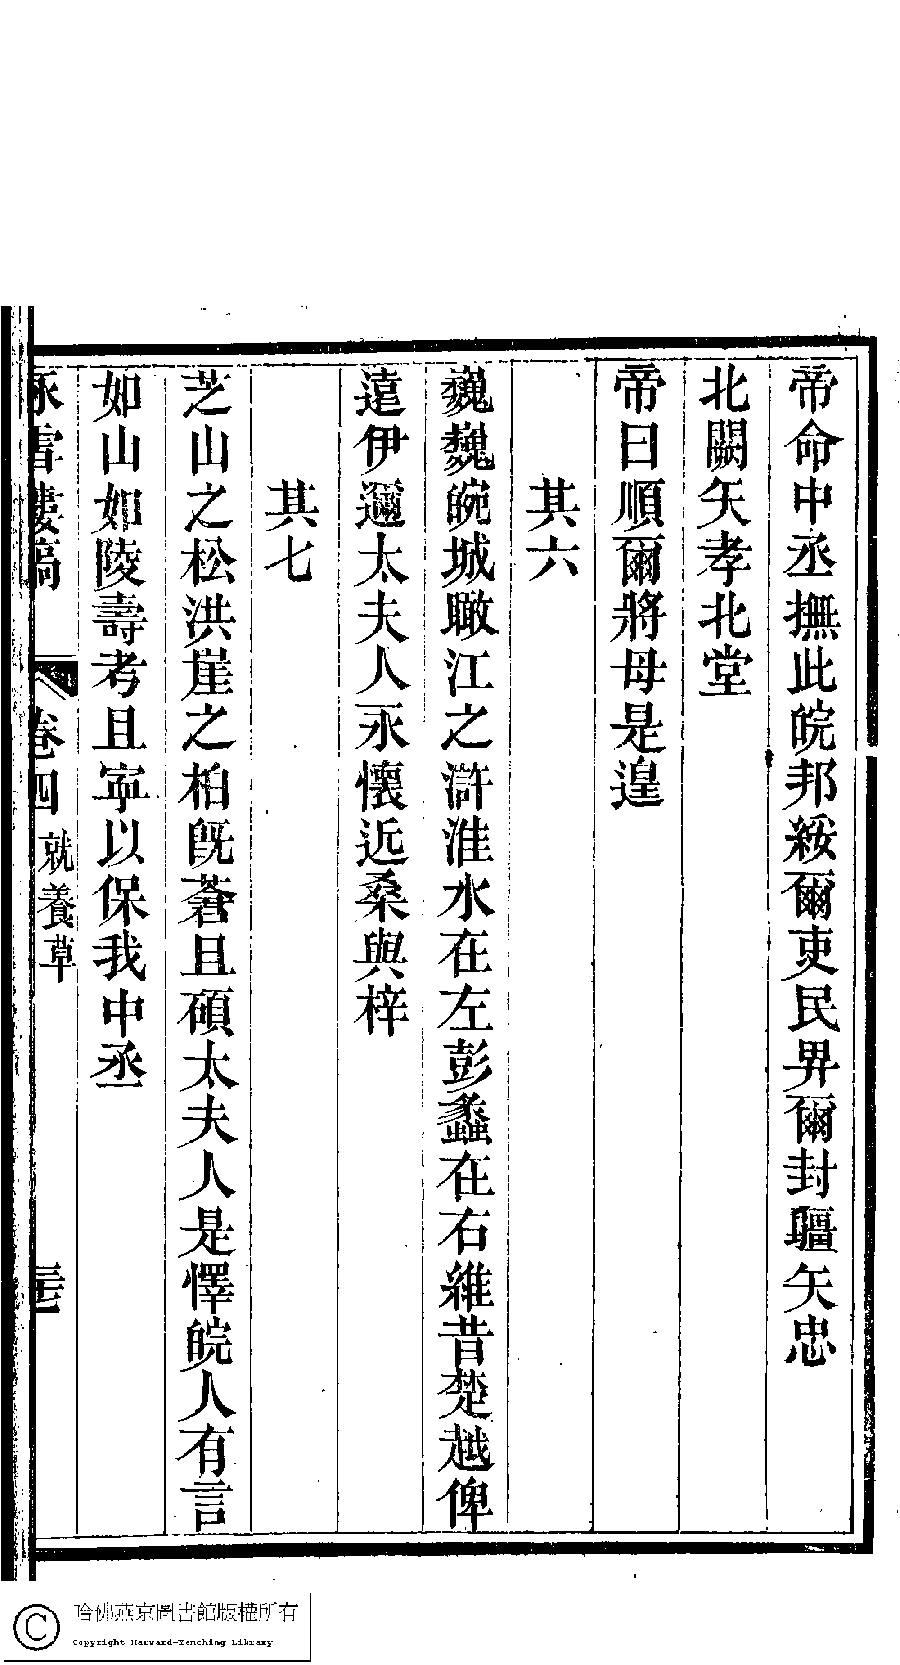 帝命中丞撫此皖邦綏爾吏民畀爾封疆矢忠
北闕矢孝北堂
帝曰順爾將母是遑
其六
巍巍皖城瞰江之滸淮水在左彭蠡在右維昔楚越俾
遠伊邇太夫人永懷近桑與梓
其七
芝山之松洪崖之柏旣蒼且碩太夫人是懌皖人有言
如山如陵壽考且寧以保我中丞
詠雪樓稿
卷四 就養草
哈佛燕京圖書館版權所有
Copyright Harvard-Yenching Library